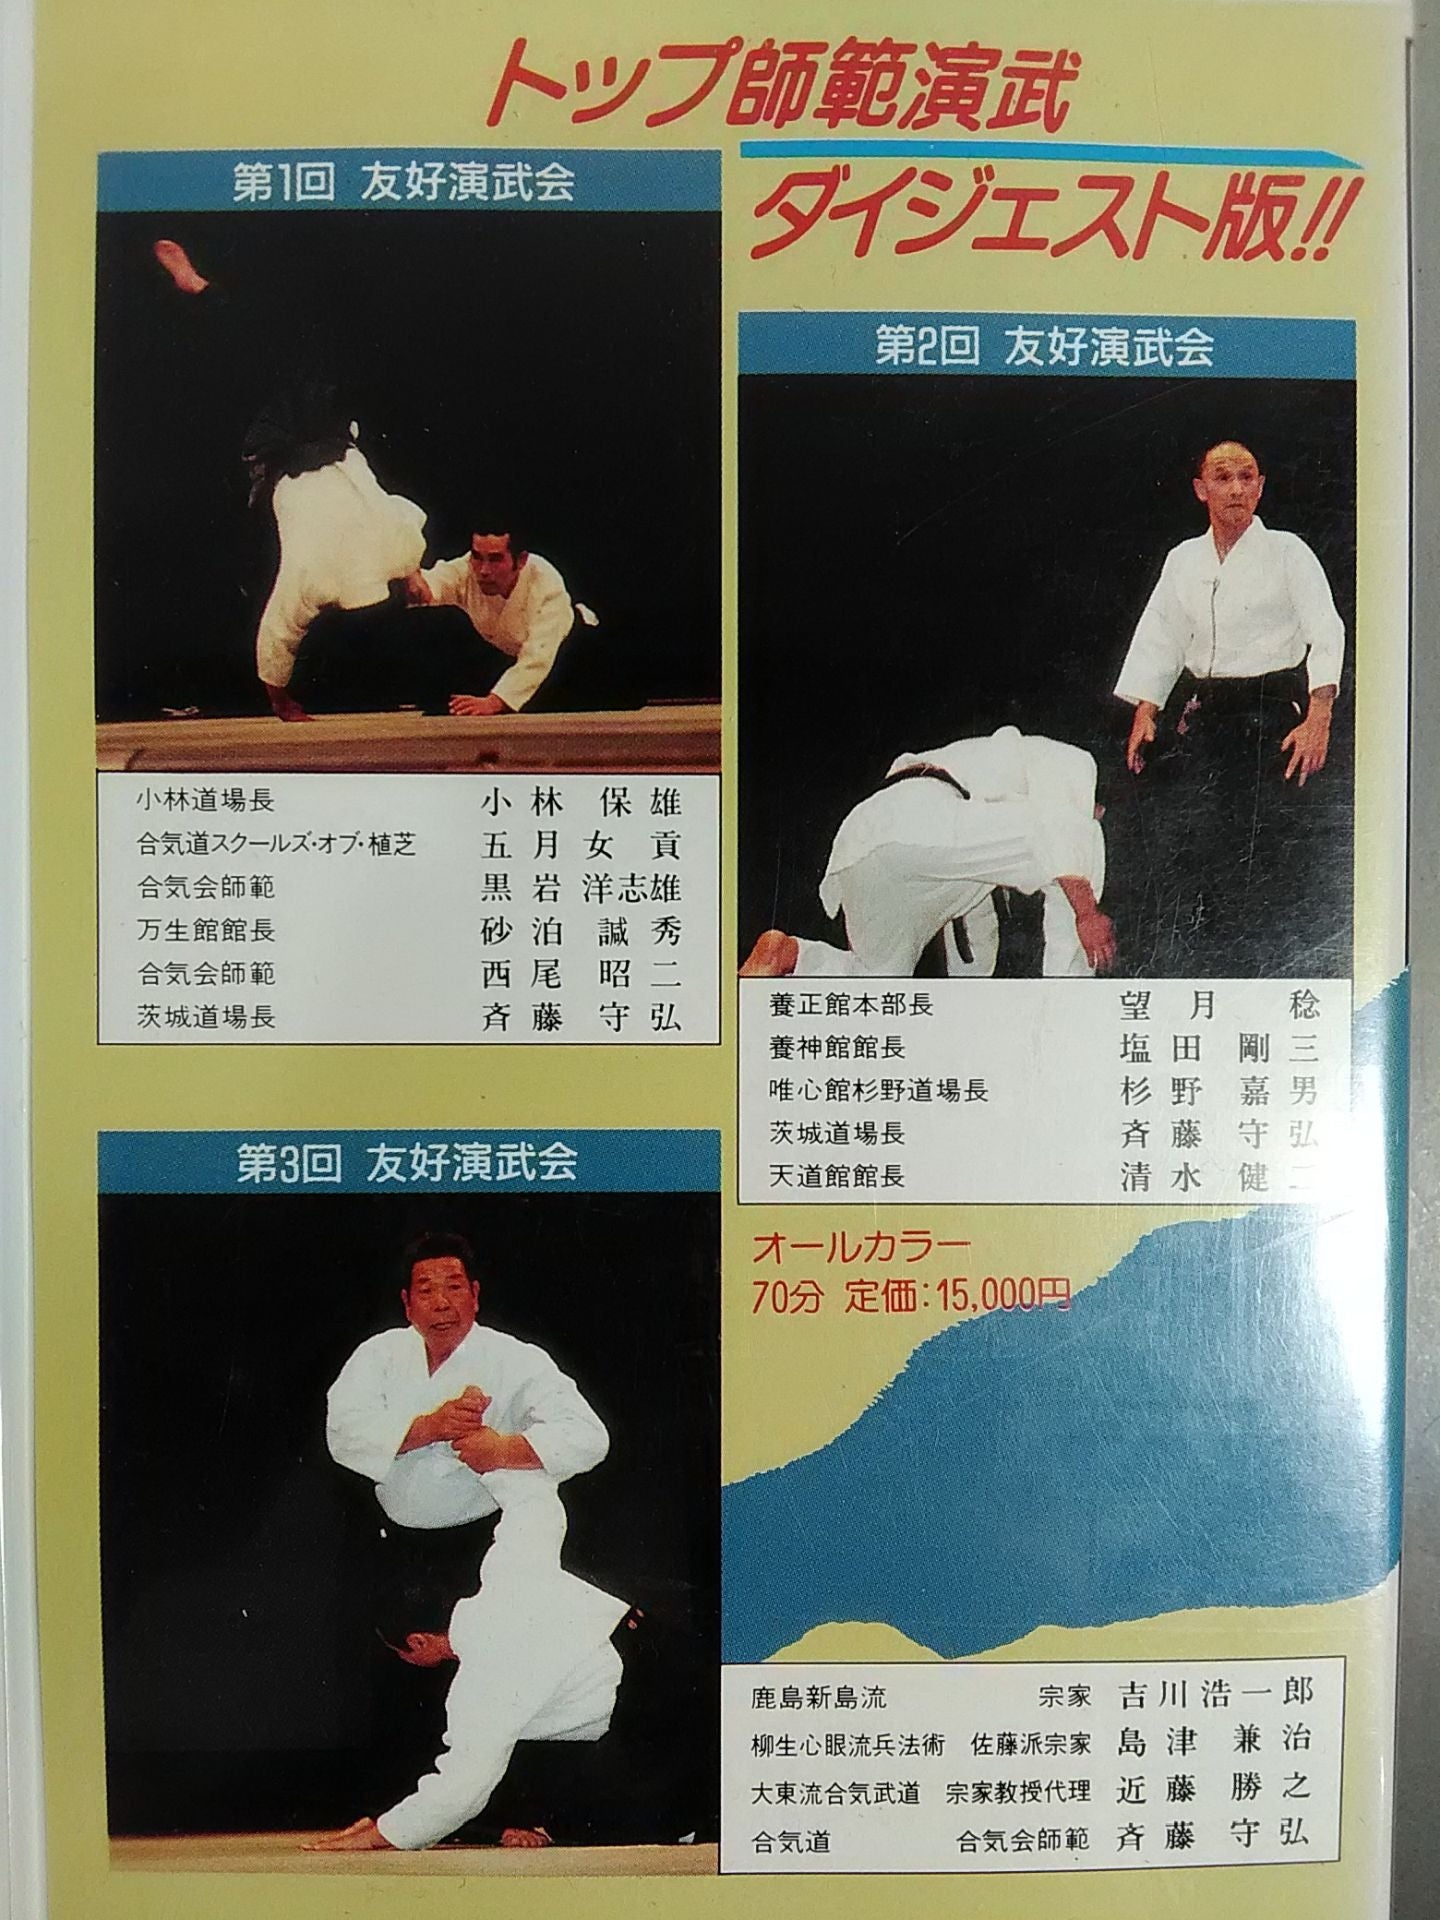 トップ師範演武
ダイジェスト版!!
第1回 友好演武会
小林道場長 小林 保雄
合気道スクールズ・オブ・植芝 五月女 貢
合気会師範 黒岩 洋志雄
万生館館長 砂泊 諴秀
合気会師範 西尾 昭二
茨城道場長 斉藤 守弘
第2回 友好演武会
養正館本部長 望月 稔
養神館館長 塩田 剛三
唯心館杉野道場長 杉野 嘉男
茨城道場長 斉藤 守弘
天道館館長 清水 健二
オールカラー
70分 定価:15,000円
第3回 友好演武会
鹿島新島流 宗家 吉川浩一郎
柳生心眼流兵法術 佐藤派宗家 島津 兼治
大東流合気武道 宗家教授代理 近藤 勝之
合気道 合気会師範 斉藤 守弘